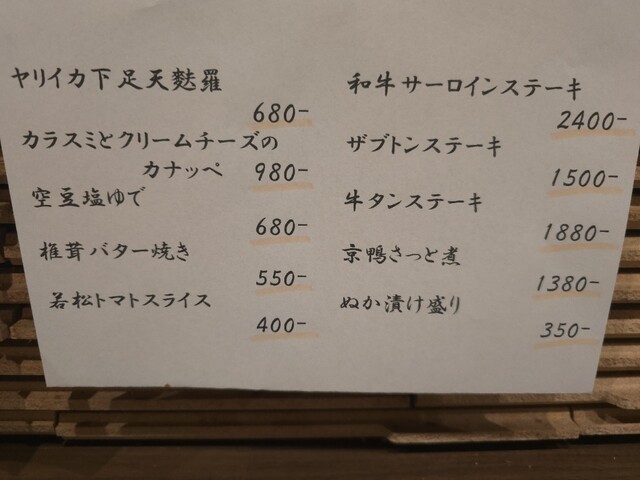 ヤリイカ下足天麩羅
680-
カラスミとクリームチーズの
カナッペ 980-
空豆塩ゆで
680-
椎茸バター焼き
550-
若松トマトスライス
400-
和牛サーロインステーキ
2400-
ザブトンステーキ
1500-
牛タンステーキ
1880-
京鴨さっと煮
1380-
ぬか漬け盛り
350-